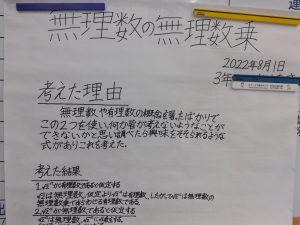 無理数の無理数乗
2022年8月1日
3年
考えた理由
無理数や有理数の概念を習ったばかりで
この2つを使い、何か皆が考えないようなことが
できないかと思い調べたら興味をそそられるような
式がありこれを考えた。
考えた結果
1.√2^√2が有理数であると仮定する
√2は無理数、仮定より√2^√2は有理数、したがって√2^√2は無理数の
無理数乗であらわせる有理数である。
2.√2^√2が無理数であると仮定する